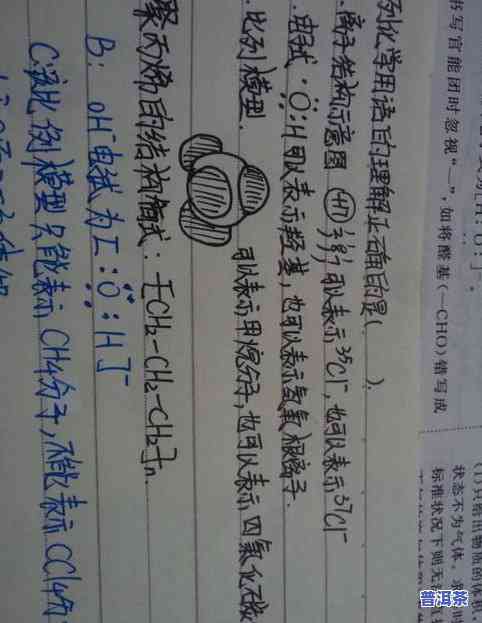 书写官能团时忽视“—”,如将醛基(—CHO)错写成
状态不为气体,
标准状况下则无
列化学用语的理解正确的是( ).
.离子结构示意图 可以表示³⁵Cl⁻,也可以表示³⁷Cl⁻
.电子式:Ö:H可以表示羟基,也可以表示氢氧根离子.
.比例模型. 可以表示甲烷分子,也可以表示四氯化碳
聚丙烯的结构简式:[CH₂-CH₂-CH₂]n.
B: OH⁻电子式为[:Ö:H]⁻
C:该比例模型只能表示CH4分子,不能表示CCl4分
普洱茶